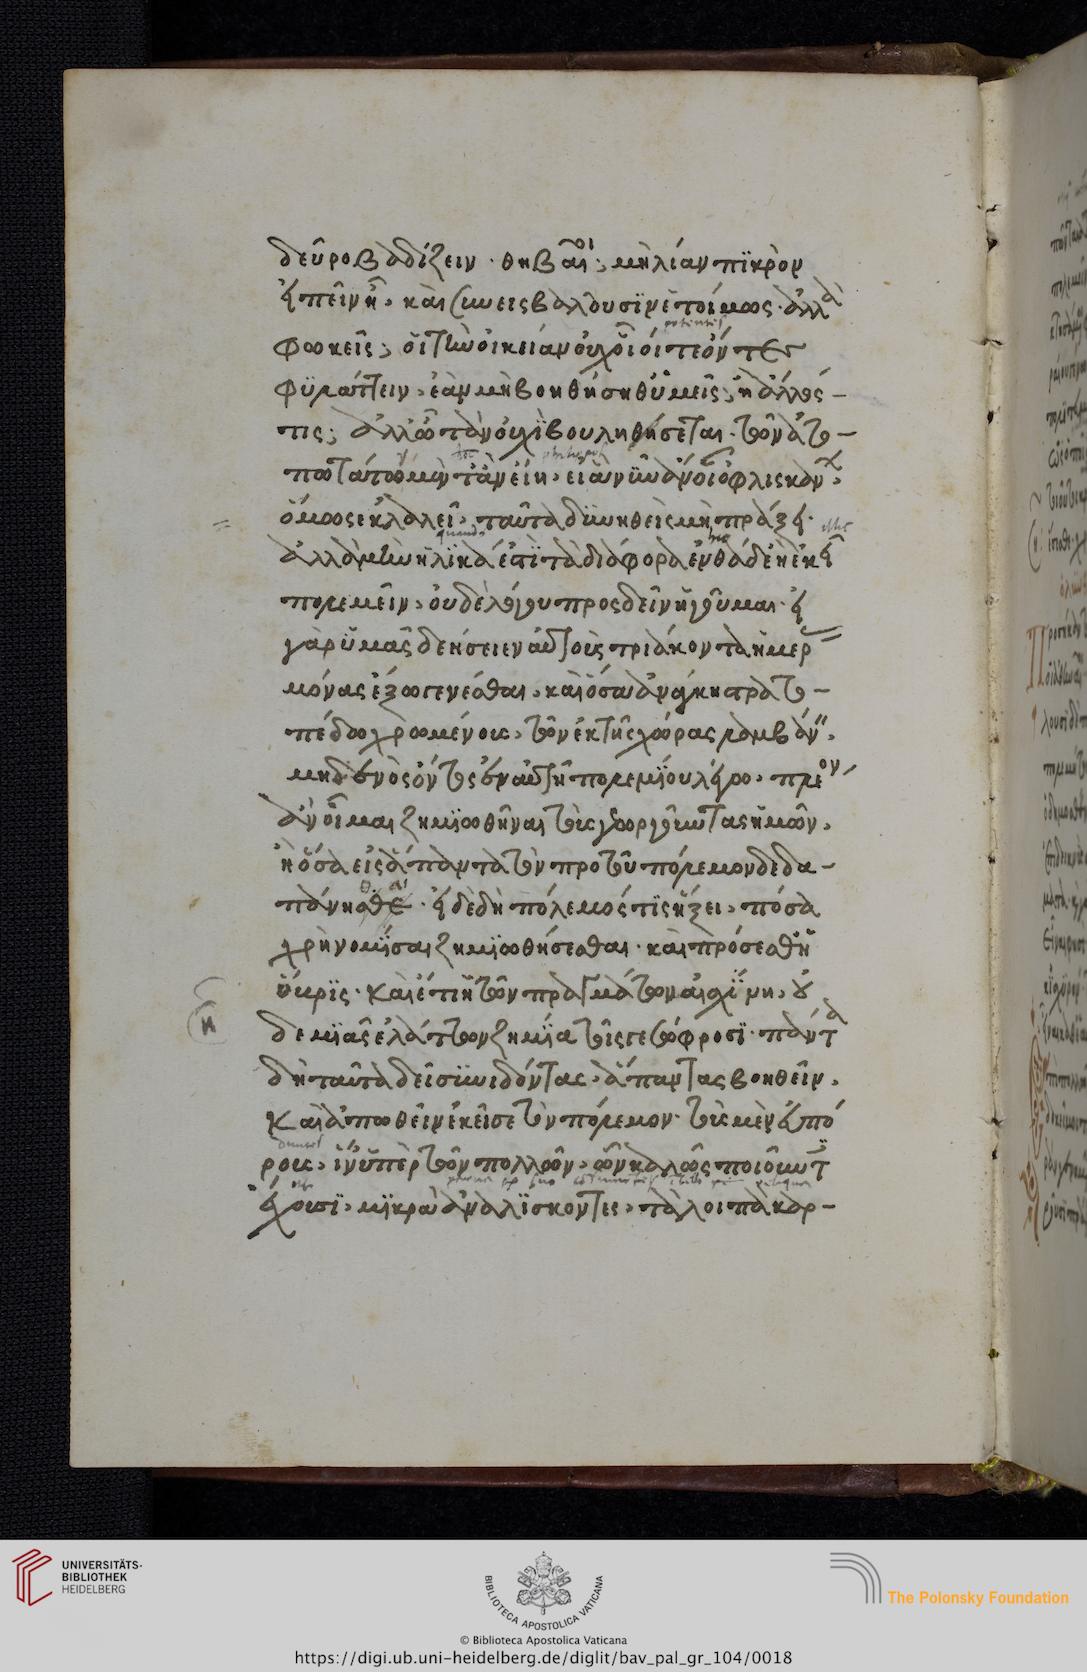 δεῦρο βαδίζειν · θηβαῖοι; μὴ λίαν πικρὸν
εἰπεῖν ἦ · καὶ συνεισβαλοῦσιν ἑτοίμως · ἀλλὰ
φωκεῖς; οἱ τὴν οἰκείαν οὐχ οἷοί τε ὄντες
φυλάττειν, ἐὰν μὴ βοηθήσηθ' ὑμεῖς; ἢ ἄλλός
τις; ἀλλ' ὦ τὰν οὐχὶ βουλήσεται · τῶν ἀτο
πωτάτων μὲν τἂν εἴη, εἰ ἃ νῦν ἄνοιαν ὀφλισκάνων
ὅμως ἐκλαλεῖ, ταῦτα δυνηθεὶς μὴ πράξει ·
ἀλλὰ μὴν ἡλίκα ἐστὶ τὰ διάφορα ἐνθάδ' ἢ ἐκεῖ
πολεμεῖν, οὐδὲ λόγου προσδεῖν ἡγοῦμαι · εἰ
γὰρ ὑμᾶς δεήσειεν αὐτοὺς τριάκοντα ἡμέρας
μόνας ἔξω γενέσθαι, καὶ ὅσα ἀνάγκη στρατο
πέδῳ χρωμένους, τῶν ἐκ τῆς χώρας λαμβάνειν,
μηδενὸς ὄντος ἐν αὐτῇ πολεμίου λέγω, πλέον
ἂν οἶμαι ζημιωθῆναι τοὺς γεωργοῦντας ἡμῶν,
ἢ ὅσα εἰς ἅπαντα τὸν πρὸ τοῦ πόλεμον δεδα
πάνησθε · εἰ δὲ δὴ πόλεμός τις ἥξει, πόσα
χρὴ νομίσαι ζημιώσεσθαι · καὶ πρόσεσθ' ἡ
ὕβρις · καὶ ἔτι ἡ τῶν πραγμάτων αἰσχύνη, οὐ
δεμιᾶς ἐλάττων ζημία τοῖς γε σώφροσι · πάντα
δὴ ταῦτα δεῖ συνιδόντας, ἅπαντας βοηθεῖν,
καὶ ἀπωθεῖν ἐκεῖσε τὸν πόλεμον · τοὺς μὲν εὐπό
ρους, ἵν' ὑπὲρ τῶν πολλῶν, ὧν καλῶς ποιοῦντες
ἔχουσι, μικρὰ ἀναλίσκοντες, τὰ λοιπὰ καρ
UNIVERSITÄTS-
BIBLIOTHEK
HEIDELBERG
BIBLIOTECA APOSTOLICA VATICANA
The Polonsky Foundation
© Biblioteca Apostolica Vaticana
https://digi.ub.uni-heidelberg.de/diglit/bav_pal_gr_104/0018